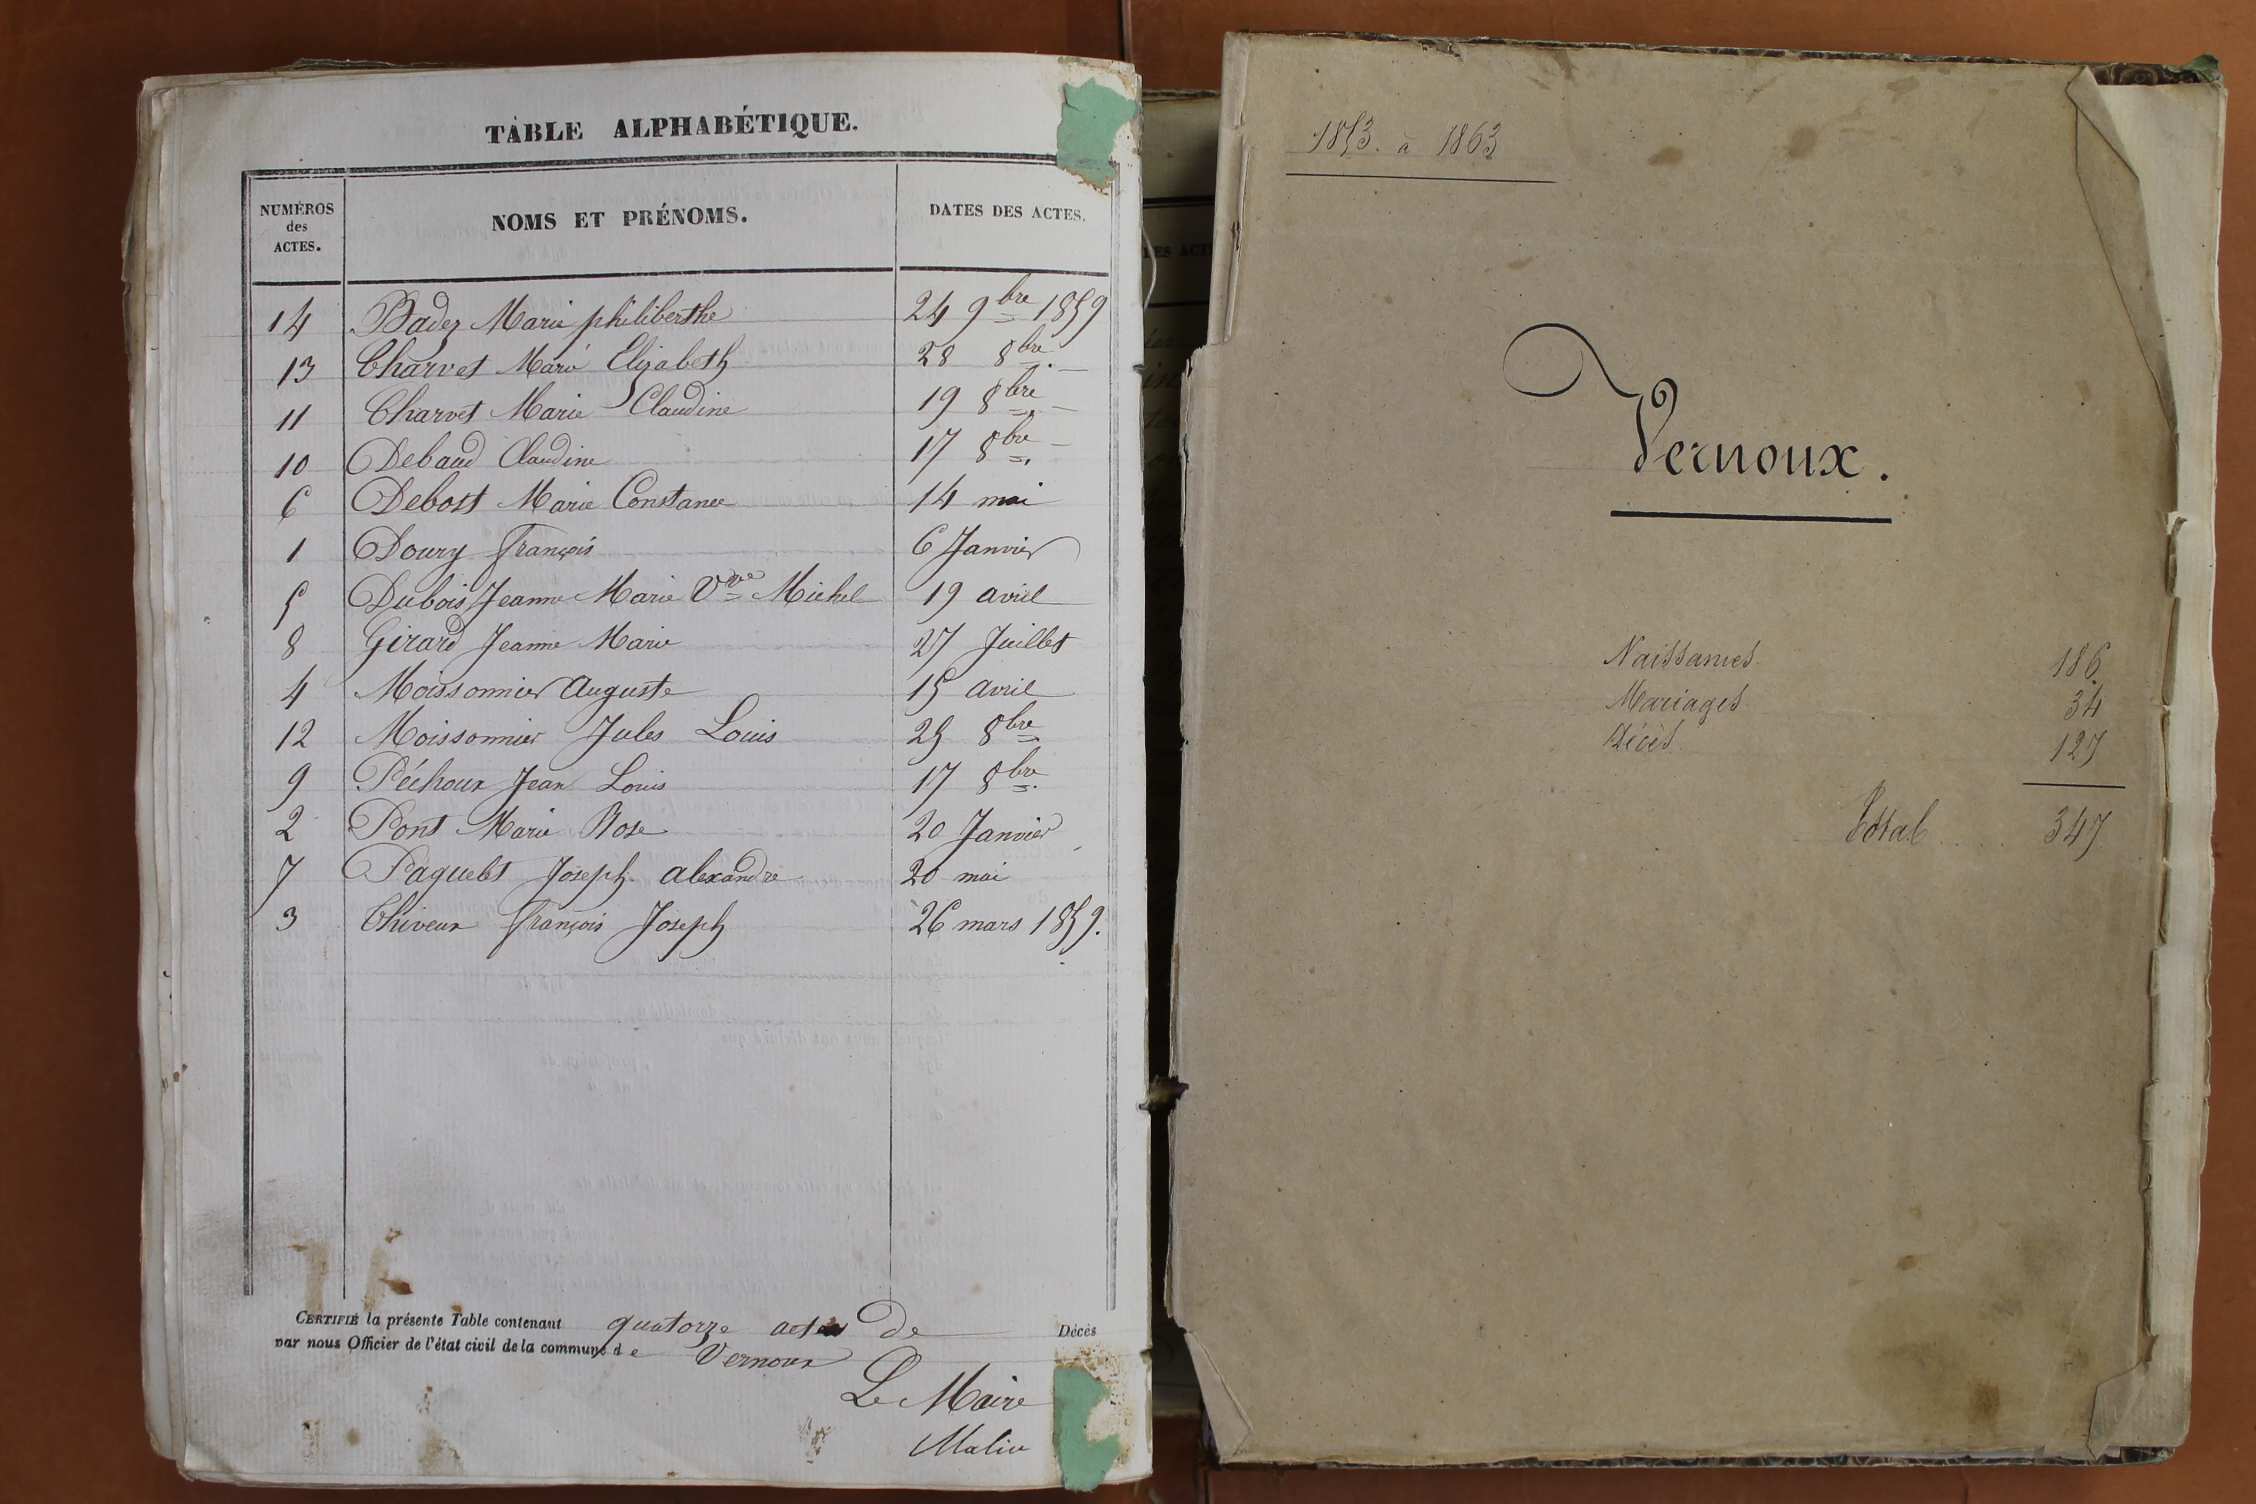 TABLE ALPHABÉTIQUE.
NUMÉROS des ACTES. NOMS ET PRÉNOMS. DATES DES ACTES.
14 Badez Marie philiberthe 24 9bre 1859
13 Charvet Marie Elizabeth 28 8bre —
11 Charvet Marie Claudine 19 8bre —
10 Debaud Claudine 17 8bre —
6 Debost Marie Constance 14 mai
1 Doury françois 6 Janvier
5 Dubois Jeanne Marie Vve Michel 19 avril
8 Girard Jeanne Marie 27 Juillet
4 Moissonnier Auguste 15 avril
12 Moissonnier Jules Louis 25 8bre
9 Péchoux Jean Louis 17 8bre.
2 Pont Marie Rose 20 Janvier
7 Paquelet Joseph alexandre 20 mai
3 Thiveux françois Joseph 26 mars 1859.
CERTIFIÉ la présente Table contenant quatorze actes de Décès
par nous Officier de l'état civil de la commune de Vernoux
Le Maire
1853. à 1863
Vernoux.
Naissances 186
Mariages 34
Décès 127
Total .... 347